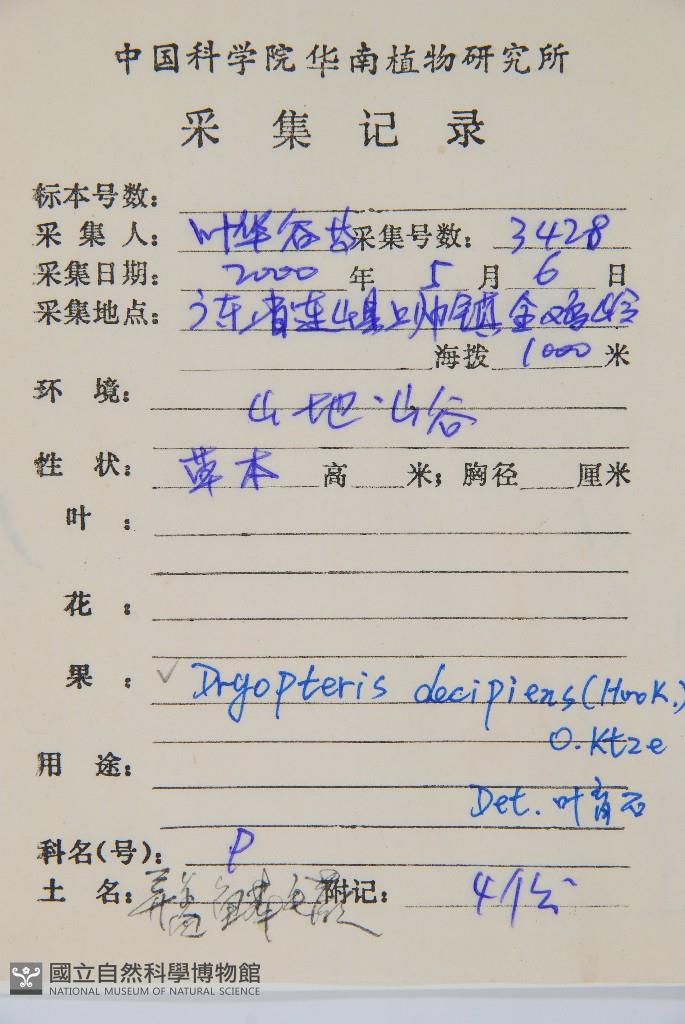 中国科学院华南植物研究所
采集记录
标本号数：
采集人：叶华谷 采集号数：3428
采集日期：2000年5月6日
采集地点：广东省连山县上帅镇金鸡岭
海拨1000米
环境：山地山谷
性状：草本 高 米；胸径 厘米
叶：
花：
果：✓ Dryopteris decipiens (Hook.)
O. Ktze
用途：
Det. 叶育石
科名(号)：P
土名： 鳞毛蕨 附记：4份
國立自然科學博物館
NATIONAL MUSEUM OF NATURAL SCIENCE